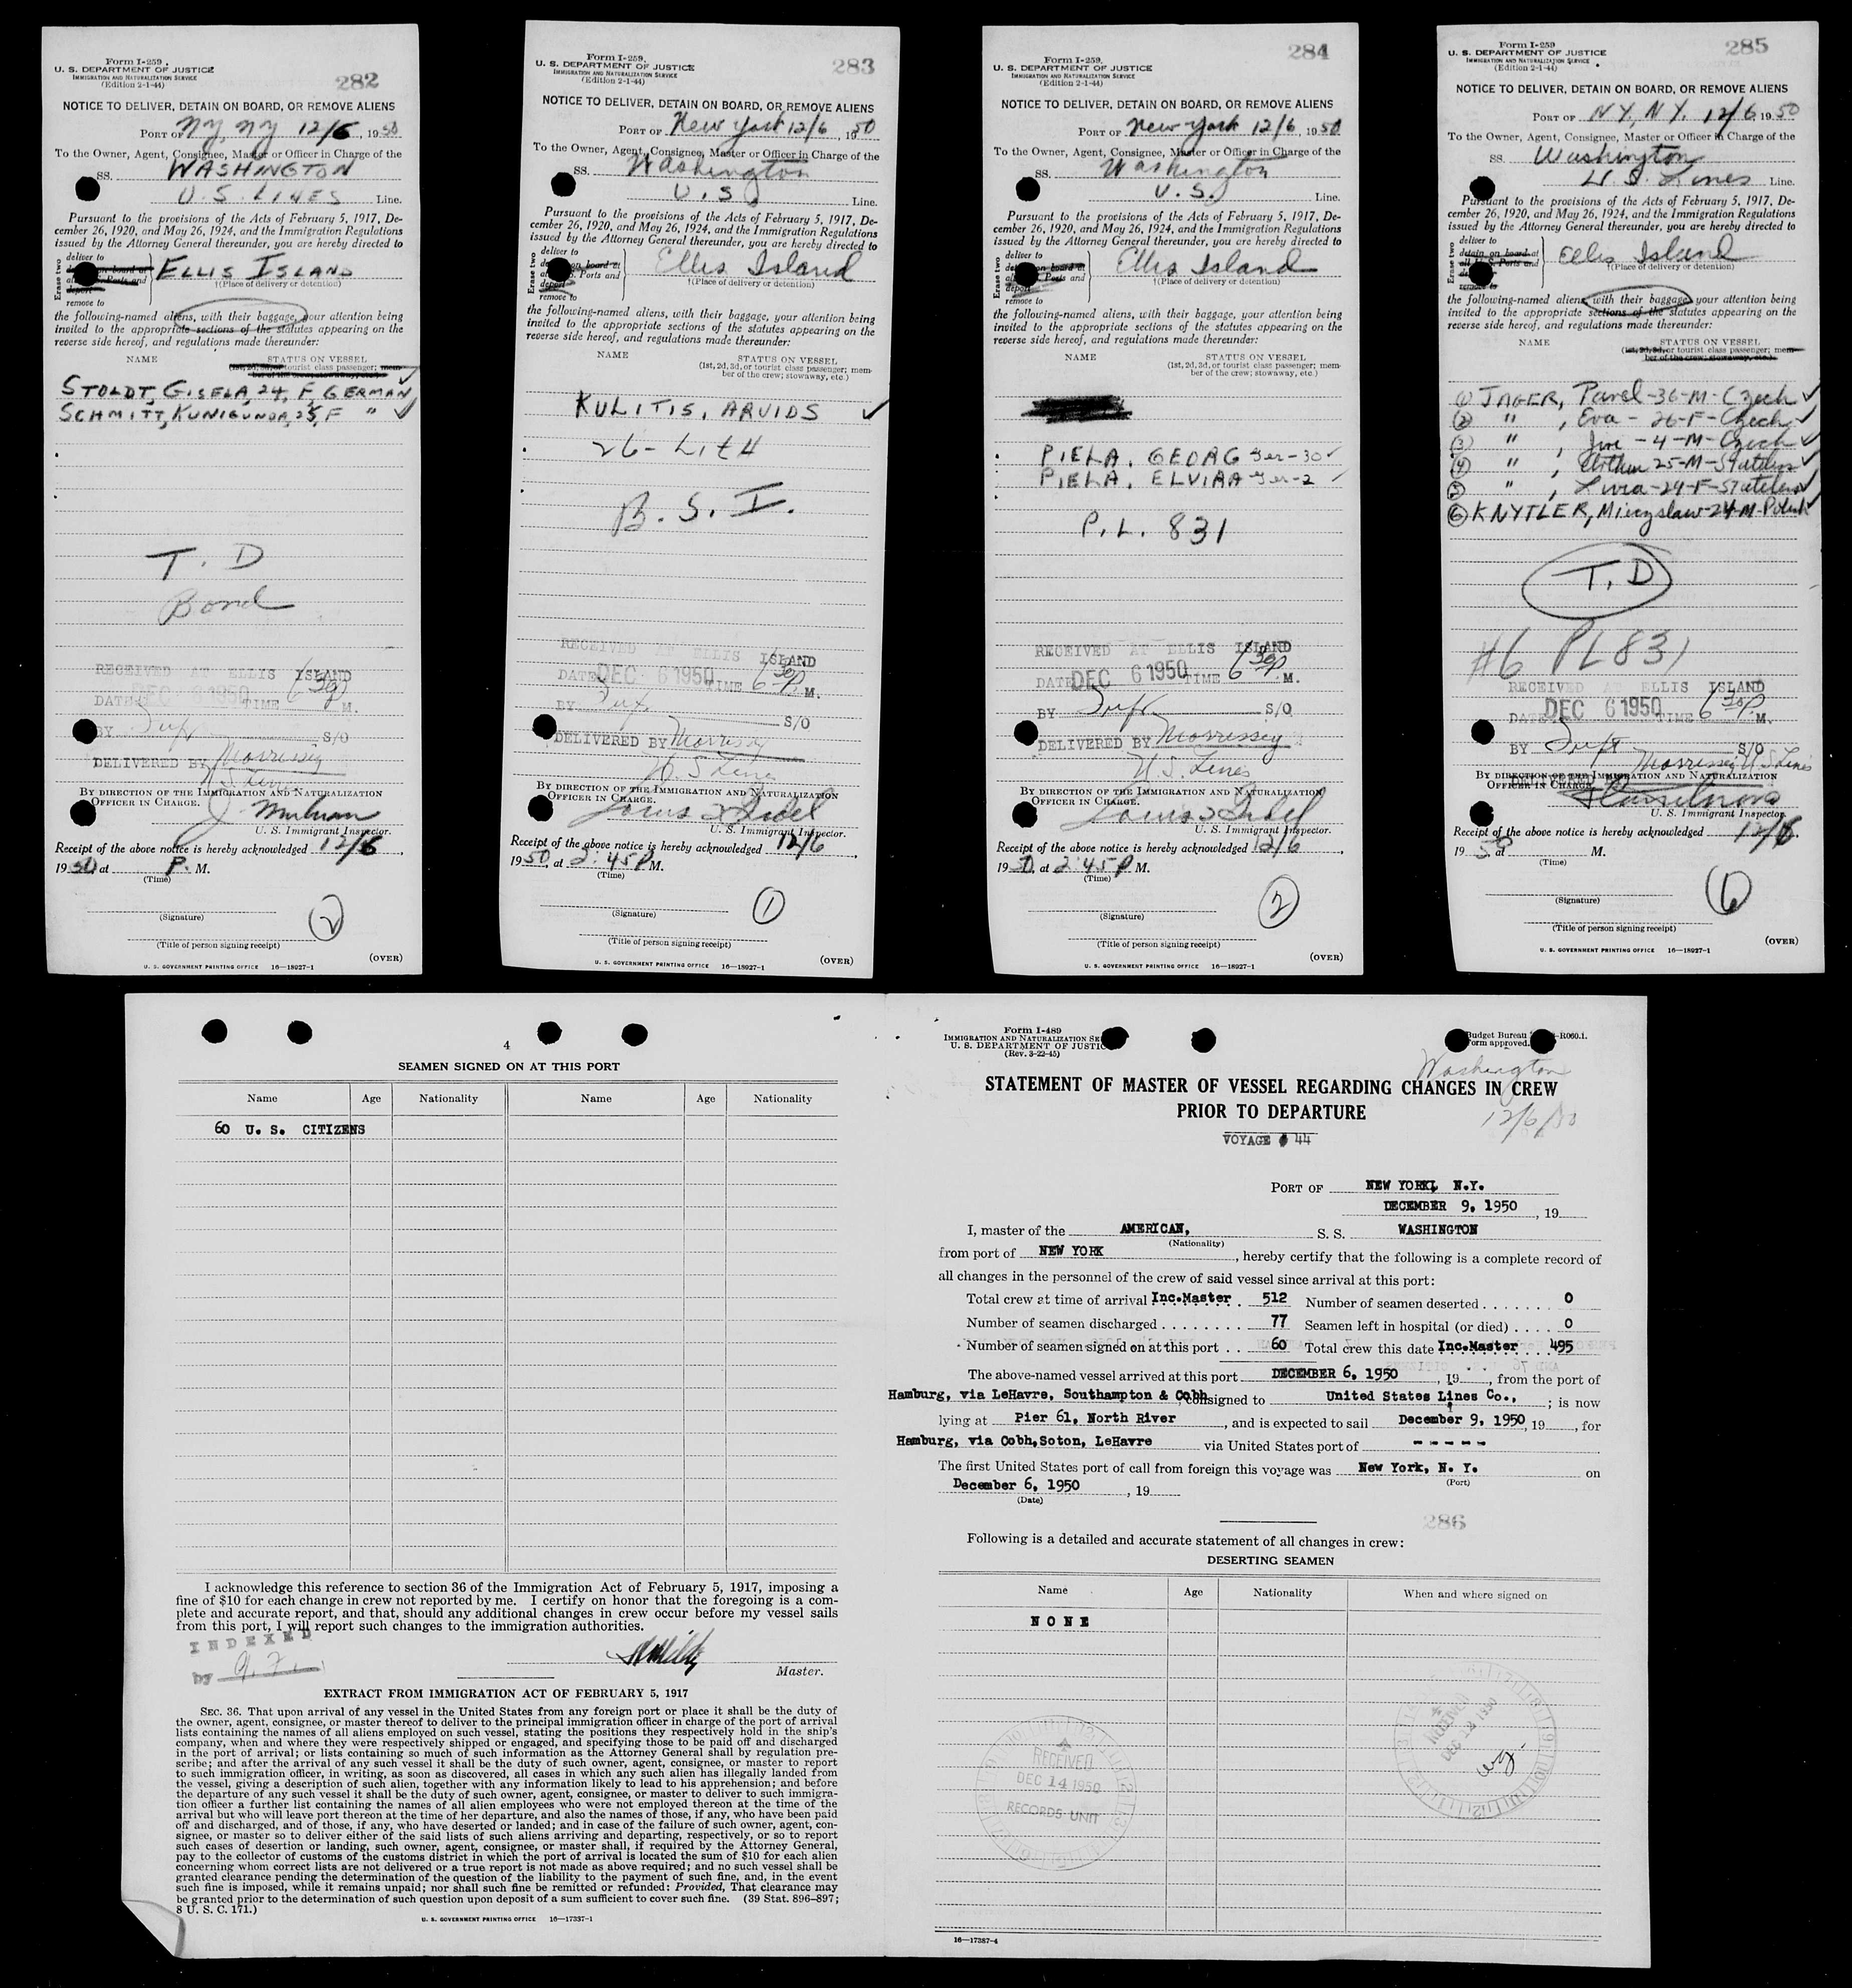 Form I-259
U. S. DEPARTMENT OF JUSTICE
IMMIGRATION AND NATURALIZATION SERVICE
(Edition 2-1-44)
282
NOTICE TO DELIVER, DETAIN ON BOARD, OR REMOVE ALIENS
PORT OF NY, NY 12/6, 1950
To the Owner, Agent, Consignee, Master or Officer in Charge of the
SS. WASHINGTON
U.S. LINES Line.
Pursuant to the provisions of the Acts of February 5, 1917, De-
cember 26, 1920, and May 26, 1924, and the Immigration Regulations
issued by the Attorney General thereunder, you are hereby directed to
Erase two
deliver to
on board at
Ports and
deport
remove to
ELLIS ISLAND
†(Place of delivery or detention)
the following-named aliens, with their baggage, your attention being
invited to the appropriate sections of the statutes appearing on the
reverse side hereof, and regulations made thereunder:
NAME STATUS ON VESSEL
(1st, 2d, 3d, or tourist class passenger; mem-
ber of the crew; stowaway, etc.)
STOLDT, GISELA, 24, F, GERMAN ✓
SCHMITT, KUNIGUNDA, 25, F " ✓
T. D
Bond
RECEIVED AT ELLIS ISLAND
DATE DEC 6 1950 TIME 6 30 P M.
BY Supt S/O
DELIVERED BY Morrissey
U.S. Lines
BY DIRECTION OF THE IMMIGRATION AND NATURALIZATION
OFFICER IN CHARGE.
U. S. Immigrant Inspector.
Receipt of the above notice is hereby acknowledged 12/6,
1950 at P. M.
(Time)
2
(Signature)
(Title of person signing receipt)
(OVER)
U. S. GOVERNMENT PRINTING OFFICE 16—18927-1
Form I-259
U. S. DEPARTMENT OF JUSTICE
IMMIGRATION AND NATURALIZATION SERVICE
(Edition 2-1-44)
283
NOTICE TO DELIVER, DETAIN ON BOARD, OR REMOVE ALIENS
PORT OF New York 12/6, 1950
To the Owner, Agent, Consignee, Master or Officer in Charge of the
SS. Washington
U.S. Line.
Pursuant to the provisions of the Acts of February 5, 1917, De-
cember 26, 1920, and May 26, 1924, and the Immigration Regulations
issued by the Attorney General thereunder, you are hereby directed to
Erase two
deliver to
on board at
Ports and
deport
remove to
Ellis Island
†(Place of delivery or detention)
the following-named aliens, with their baggage, your attention being
invited to the appropriate sections of the statutes appearing on the
reverse side hereof, and regulations made thereunder:
NAME STATUS ON VESSEL
(1st, 2d, 3d, or tourist class passenger; mem-
ber of the crew; stowaway, etc.)
KULITIS, ARVIDS ✓
26 - LITH
B. S. I.
RECEIVED AT ELLIS ISLAND
DATE DEC 6 1950 TIME 6 30 P. M.
BY Supt S/O
DELIVERED BY Morrissey
U. S Lines
BY DIRECTION OF THE IMMIGRATION AND NATURALIZATION
OFFICER IN CHARGE.
U. S. Immigrant Inspector.
Receipt of the above notice is hereby acknowledged 12/6,
1950 at 2:45 P M.
(Time)
1
(Signature)
(Title of person signing receipt)
(OVER)
U. S. GOVERNMENT PRINTING OFFICE 16—18927-1
Form I-259
U. S. DEPARTMENT OF JUSTICE
IMMIGRATION AND NATURALIZATION SERVICE
(Edition 2-1-44)
284
NOTICE TO DELIVER, DETAIN ON BOARD, OR REMOVE ALIENS
PORT OF New York 12/6, 1950
To the Owner, Agent, Consignee, Master or Officer in Charge of the
SS. Washington
U.S. Line.
Pursuant to the provisions of the Acts of February 5, 1917, De-
cember 26, 1920, and May 26, 1924, and the Immigration Regulations
issued by the Attorney General thereunder, you are hereby directed to
Erase two
deliver to
on board at
Ports and
deport
remove to
Ellis Island
†(Place of delivery or detention)
the following-named aliens, with their baggage, your attention being
invited to the appropriate sections of the statutes appearing on the
reverse side hereof, and regulations made thereunder:
NAME STATUS ON VESSEL
(1st, 2d, 3d, or tourist class passenger; mem-
ber of the crew; stowaway, etc.)
PIELA, GEORG Ger - 30 ✓
PIELA, ELVIRA Ger - 2 ✓
P. L. 831
RECEIVED AT ELLIS ISLAND
DATE DEC 6 1950 TIME 6 30 P. M.
BY Supt S/O
DELIVERED BY Morrissey
U.S. Lines
BY DIRECTION OF THE IMMIGRATION AND NATURALIZATION
OFFICER IN CHARGE.
U. S. Immigrant Inspector.
Receipt of the above notice is hereby acknowledged 12/6,
1950, at 2:45 P M.
(Time)
2
(Signature)
(Title of person signing receipt)
(OVER)
U. S. GOVERNMENT PRINTING OFFICE 16—18927-1
Form I-259
U. S. DEPARTMENT OF JUSTICE
IMMIGRATION AND NATURALIZATION SERVICE
(Edition 2-1-44)
285
NOTICE TO DELIVER, DETAIN ON BOARD, OR REMOVE ALIENS
PORT OF N.Y., N.Y. 12/6 1950
To the Owner, Agent, Consignee, Master or Officer in Charge of the
SS. Washington
U. S. Lines Line.
Pursuant to the provisions of the Acts of February 5, 1917, De-
cember 26, 1920, and May 26, 1924, and the Immigration Regulations
issued by the Attorney General thereunder, you are hereby directed to
Erase two
deliver to
detain on board at
all U. S. Ports and
remove to
Ellis Island
†(Place of delivery or detention)
the following-named aliens, with their baggage, your attention being
invited to the appropriate sections of the statutes appearing on the
reverse side hereof, and regulations made thereunder:
NAME STATUS ON VESSEL
(1st, 2d, 3d, or tourist class passenger; mem-
ber of the crew, stowaway, etc.)
(1) JAGER, Pavel - 36 - M - Czech ✓
(2) " , Eva - 26 - F - Czech ✓
(3) " , - 4 - M - Czech ✓
(4) " , Arthur 25 - M - Stateless ✓
(5) " , Livia - 24 - F - Stateless ✓
(6) KNYTLER, Mieczslaw - 24 - M - Polish ✓
T. D
#6 PL 831
RECEIVED AT ELLIS ISLAND
DATE DEC 6 1950 TIME 6 30 P. M.
BY Supt S/O
Morrissey U S Lines
DELIVERED BY
BY DIRECTION OF THE IMMIGRATION AND NATURALIZATION
OFFICER IN CHARGE.
U. S. Immigrant Inspector.
Receipt of the above notice is hereby acknowledged 12/6.
1950 at M.
(Time)
6
(Signature)
(Title of person signing receipt)
(OVER)
U. S. GOVERNMENT PRINTING OFFICE 16—18927-1
4
SEAMEN SIGNED ON AT THIS PORT
Name Age Nationality Name Age Nationality
60 U. S. CITIZENS
I acknowledge this reference to section 36 of the Immigration Act of February 5, 1917, imposing a
fine of $10 for each change in crew not reported by me. I certify on honor that the foregoing is a com-
plete and accurate report, and that, should any additional changes in crew occur before my vessel sails
from this port, I will report such changes to the immigration authorities.
INDEXED
by
Master.
EXTRACT FROM IMMIGRATION ACT OF FEBRUARY 5, 1917
SEC. 36. That upon arrival of any vessel in the United States from any foreign port or place it shall be the duty of
the owner, agent, consignee, or master thereof to deliver to the principal immigration officer in charge of the port of arrival
lists containing the names of all aliens employed on such vessel, stating the positions they respectively hold in the ship's
company, when and where they were respectively shipped or engaged, and specifying those to be paid off and discharged
in the port of arrival; or lists containing so much of such information as the Attorney General shall by regulation pre-
scribe; and after the arrival of any such vessel it shall be the duty of such owner, agent, consignee, or master to report
to such immigration officer, in writing, as soon as discovered, all cases in which any such alien has illegally landed from
the vessel, giving a description of such alien, together with any information likely to lead to his apprehension; and before
the departure of any such vessel it shall be the duty of such owner, agent, consignee, or master to deliver to such immigra-
tion officer a further list containing the names of all alien employees who were not employed thereon at the time of the
arrival but who will leave port thereon at the time of her departure, and also the names of those, if any, who have been paid
off and discharged, and of those, if any, who have deserted or landed; and in case of the failure of such owner, agent, con-
signee, or master so to deliver either of the said lists of such aliens arriving and departing, respectively, or so to report
such cases of desertion or landing, such owner, agent, consignee, or master shall, if required by the Attorney General,
pay to the collector of customs of the customs district in which the port of arrival is located the sum of $10 for each alien
concerning whom correct lists are not delivered or a true report is not made as above required; and no such vessel shall be
granted clearance pending the determination of the question of the liability to the payment of such fine, and, in the event
such fine is imposed, while it remains unpaid; nor shall such fine be remitted or refunded: Provided, That clearance may
be granted prior to the determination of such question upon deposit of a sum sufficient to cover such fine. (39 Stat. 896-897;
8 U. S. C. 171.)
U. S. GOVERNMENT PRINTING OFFICE 16—17337-1
Form I-489
IMMIGRATION AND NATURALIZATION SE
U. S. DEPARTMENT OF JUSTIC
(Rev. 3-22-45)
Budget Bureau -R060.1.
Form approved.
Washington
12/6/50
STATEMENT OF MASTER OF VESSEL REGARDING CHANGES IN CREW
PRIOR TO DEPARTURE
VOYAGE # 44
PORT OF NEW YORK, N.Y.
DECEMBER 9, 1950, 19
I, master of the AMERICAN, S. S. WASHINGTON
(Nationality)
from port of NEW YORK, hereby certify that the following is a complete record of
all changes in the personnel of the crew of said vessel since arrival at this port:
Total crew at time of arrival Inc.Master 512 Number of seamen deserted 0
Number of seamen discharged 77 Seamen left in hospital (or died) 0
Number of seamen signed on at this port 60 Total crew this date Inc.Master 495
The above-named vessel arrived at this port DECEMBER 6, 1950, 19, from the port of
Hamburg, via LeHavre, Southampton & Cobh, consigned to United States Lines Co., ; is now
lying at Pier 61, North River, and is expected to sail December 9, 1950, 19, for
Hamburg, via Cobh,Soton, LeHavre via United States port of - - - - -
The first United States port of call from foreign this voyage was New York, N. Y. on
(Port)
December 6, 1950, 19
(Date)
286
Following is a detailed and accurate statement of all changes in crew:
DESERTING SEAMEN
Name Age Nationality When and where signed on
NONE
RECEIVED
DEC 14 1950
RECORDS UNIT
RECEIVED
1950
16—17387-4